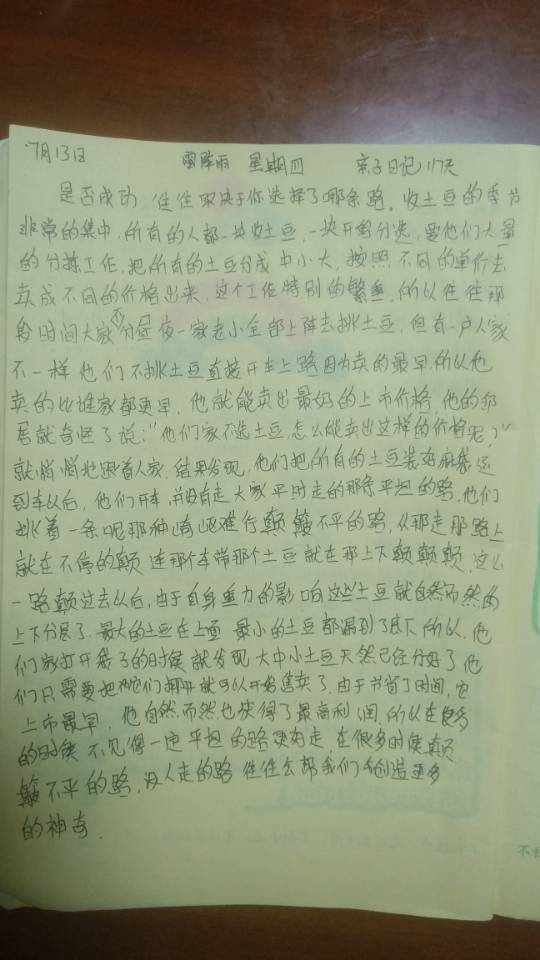 7月13日 雷阵雨 星期四 亲子日记117天
是否成功,往往取决于你选择了哪条路。收土豆的季节
非常的集中,所有的人都一块收土豆,一块开始分选,要他们大量
的分拣工作,把所有的土豆分成中小大,按照不同的单价去
卖成不同的价格出来,这个工作特别的繁重,所以往往那
段时间大家不分昼夜一家老小全部上阵去挑土豆,但有一户人家
不一样他们不挑土豆直接开车上路因为卖的最早,所以他
卖的比谁家都更早,他就能卖出最好的上市价格,他的邻
居就奇怪了说:"他们家不选土豆,怎么能卖出这样的价格呢?"
就悄悄地跟着人家,结果发现,他们把所有的土豆装好麻袋运
到车以后,他们开车,并没有走大家平时走的那条平坦的路,他们
挑着一条呢那种崎岖难行颠簸不平的路,从那走那路上
就在不停的颠,连那个车带那个土豆就在那上下颠颠颠,这么
一路颠过去以后,由于自身重力的影响这些土豆就自然而然的
上下分层了,最大的土豆在上面 最小的土豆都漏到了底下,所以,他
们家打开袋子的时候就发现大中小土豆天然已经分好了他
们只需要把它们搬开就可以开始售卖了,由于节省了时间,它
上市最早,他自然而然也获得了最高利润,所以在很多
的时候不见得一定平坦的路更好走,在很多时候颠
簸不平的路,没人走的路往往会帮我们创造更多
的神奇.